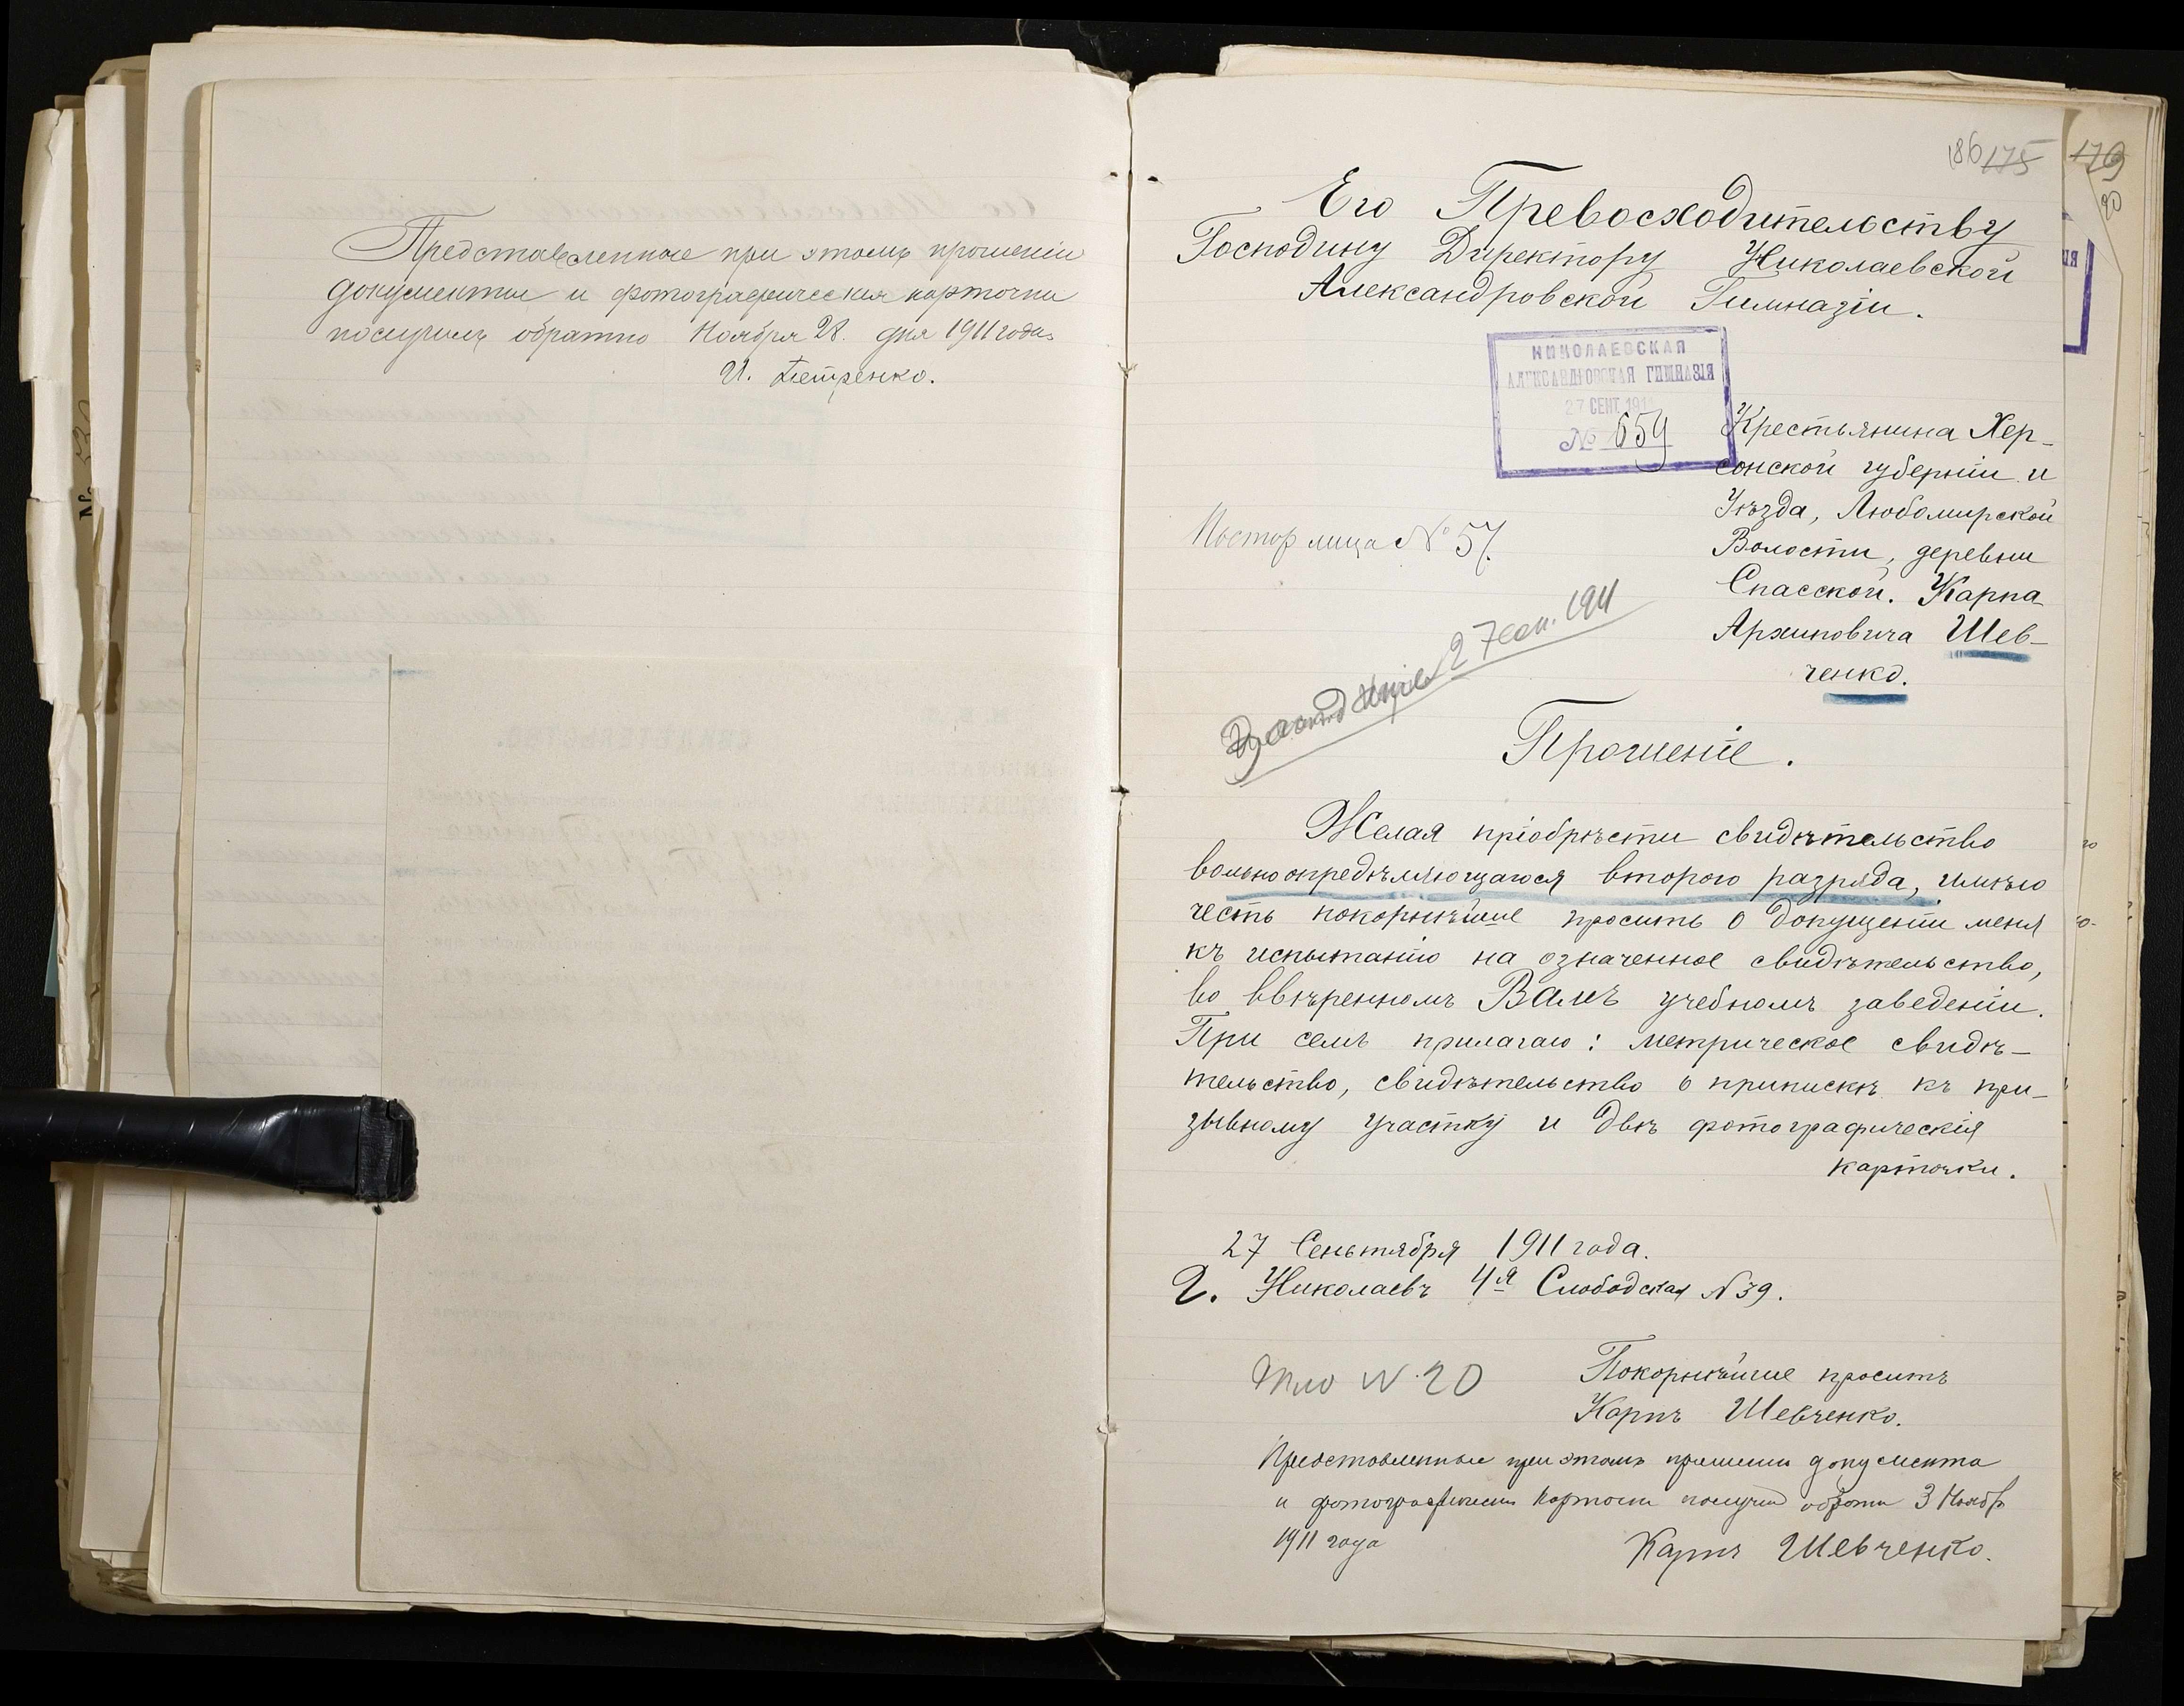 Представленные при этомъ прошеніи
документы и фотографическія карточки
получилъ обратно Ноября 28. дня 1911 года
И. Петренко.
186 175
179
20
Его Превосходительству
Господину Директору Николаевской
Александровской Гимназіи.
НИКОЛАЕВСКАЯ
АЛЕКСАНДРОВСКАЯ ГИМНАЗІЯ
27 СЕНТ. 1911
№ 659
ІЯ
Крестьянина Хер-
сонской губерніи и
Уѣзда, Любомирской
Волости, деревни
Спасской. Карпа
Архиповича Шев-
ченко.
лица № 57.
27 сен. 1911
Прошеніе.
Желая пріобрѣсти свидѣтельство
вольноопредѣляющагося второго разряда, имѣю
честь покорнѣйше просить о допущеніи меня
къ испытанію на означенное свидѣтельство,
во ввѣренномъ Вамъ учебномъ заведеніи.
При семъ прилагаю: метрическое свидѣ-
тельство, свидѣтельство о припискѣ къ при-
зывному участку и двѣ фотографическія
карточки.
27 Сеньтября 1911 года.
Г. Николаевъ 4я Слободская N 39.
N. 20
Покорнѣйше проситъ
Карпъ Шевченко.
Представленные при этомъ прошении документа
и фотографически карточки получил обратн 3 Ноябр
1911 года
Карпъ Шевченко.